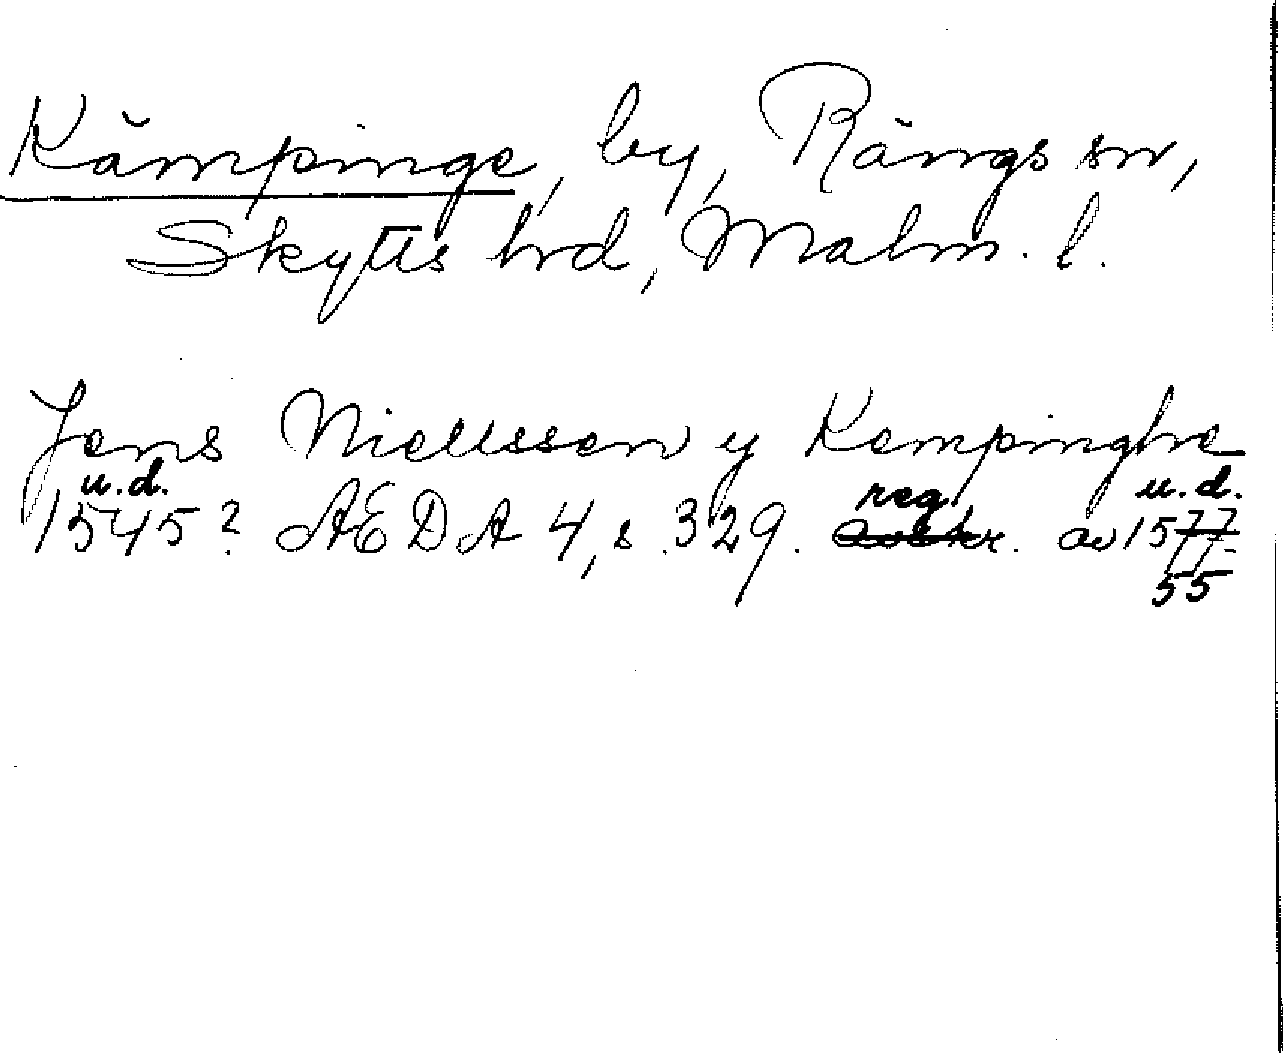 Kämpinge, by, Rängs sn,
Skytts hrd, Malm. l.
Jens Niellssen y Kempinghe
u.d. reg. u.d.
1545? AEDA 4, s. 329. avskr. av 1577
55